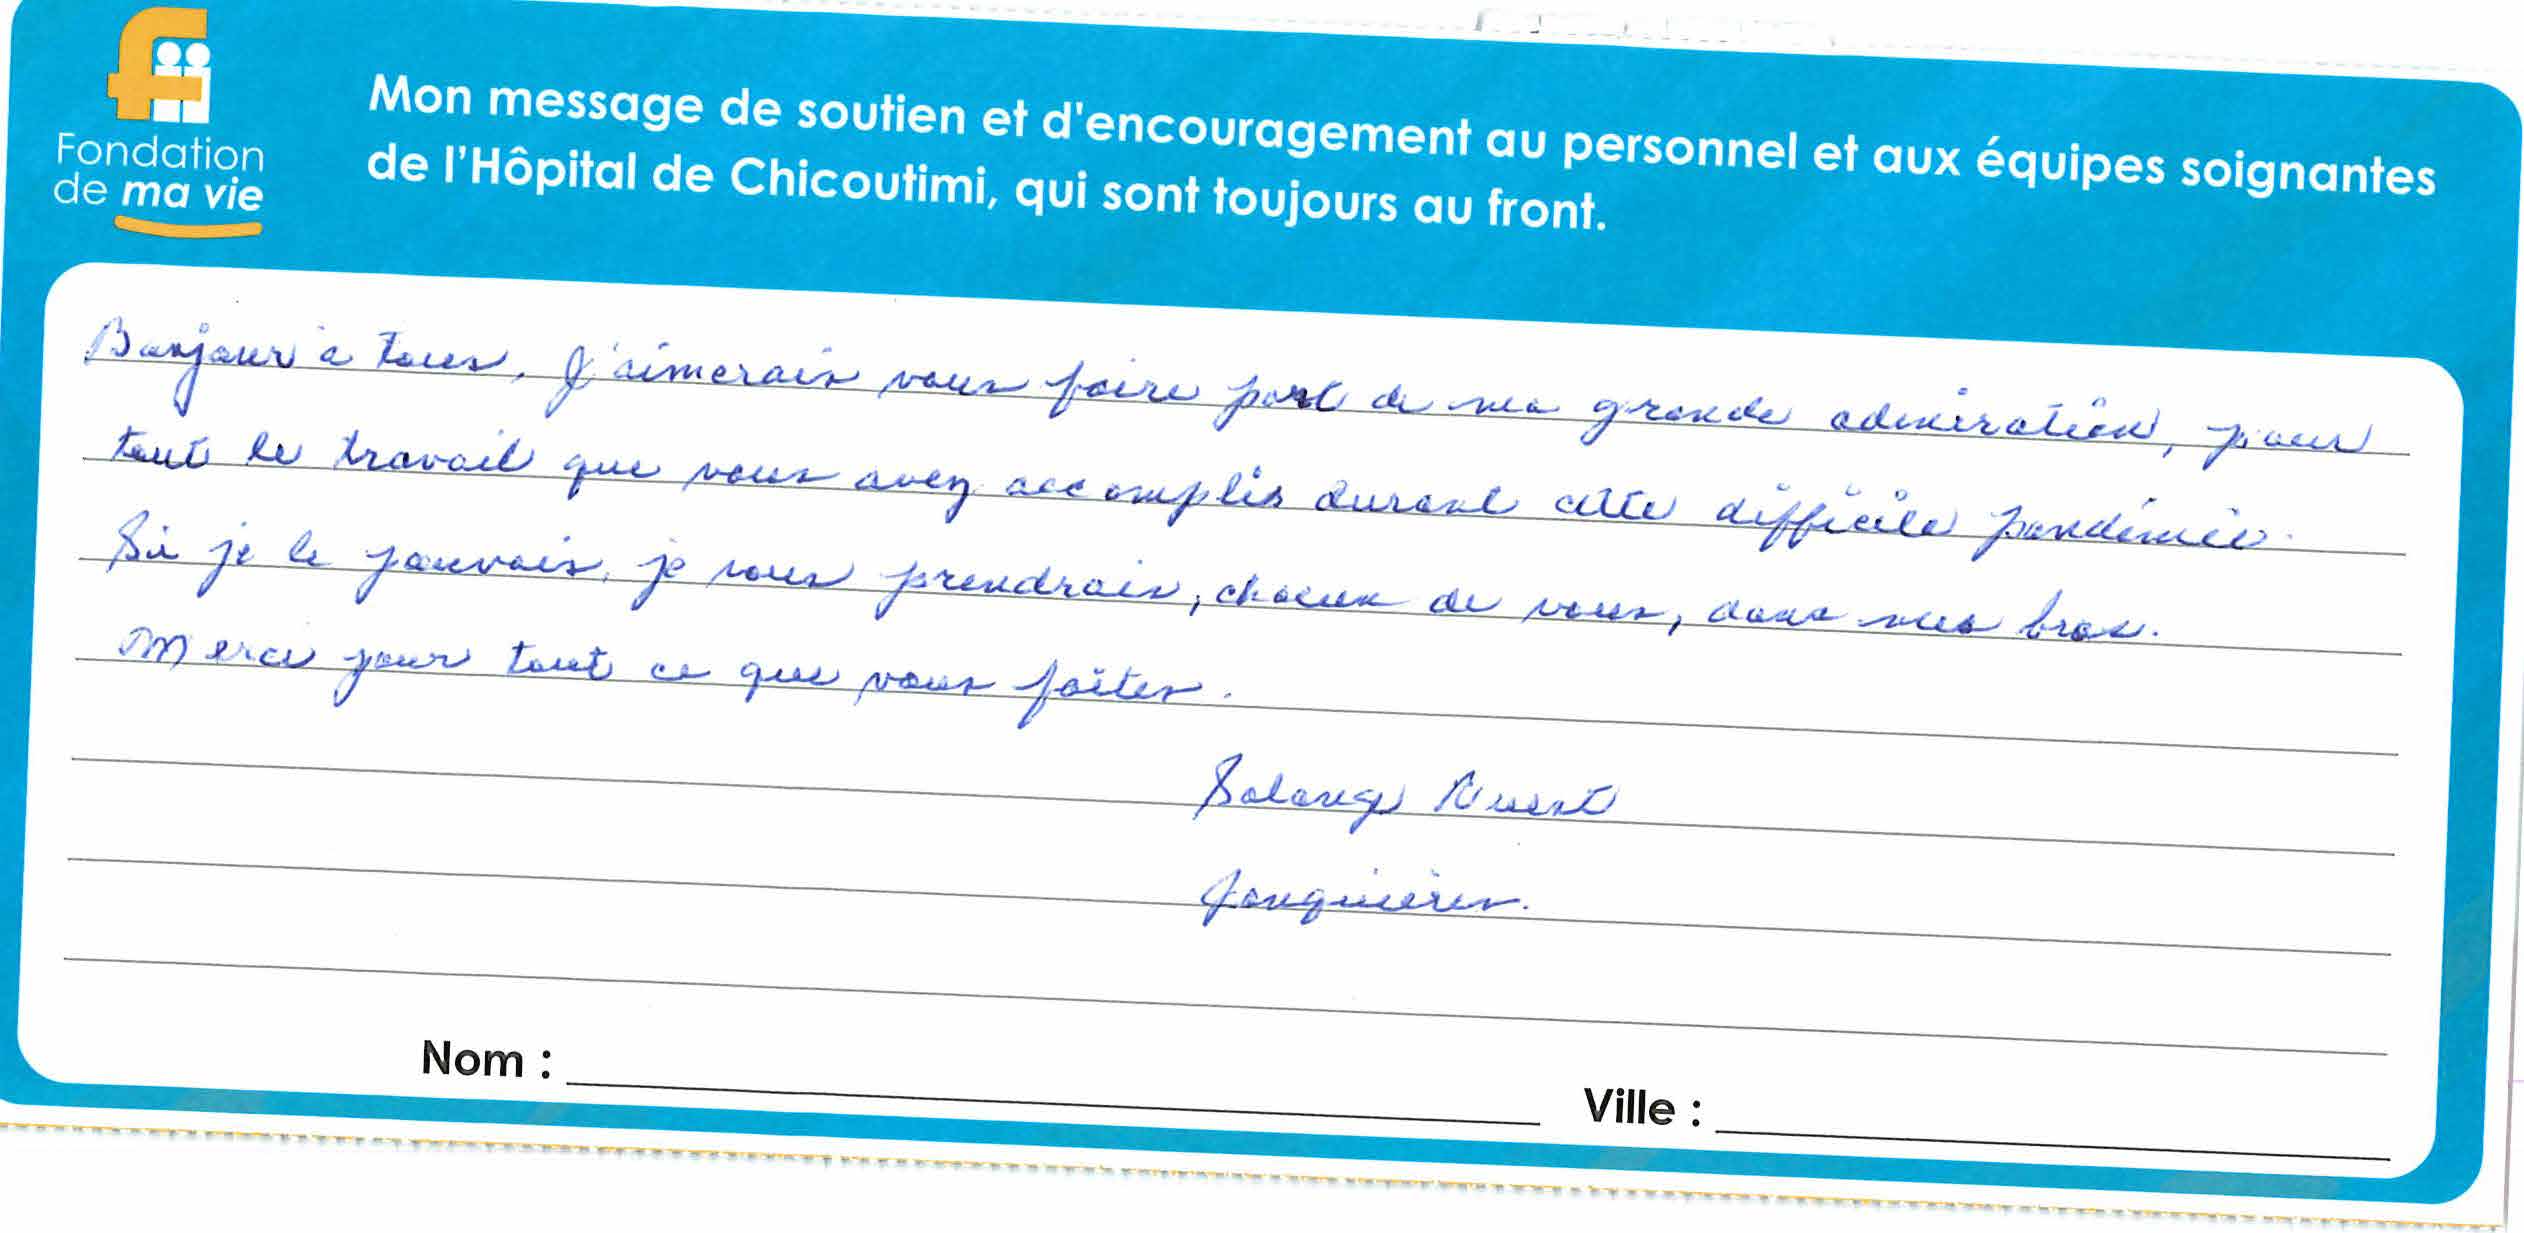 Fondation
de ma vie
Mon message de soutien et d'encouragement au personnel et aux équipes soignantes
de l'Hôpital de Chicoutimi, qui sont toujours au front.
Bonjour à tous, J'aimerais vous faire part de ma grande admiration, pour
tout le travail que vous avez accomplis durant cette difficile pandémie.
Si je le pouvais, je vous prendrais, chacun de vous, dans mes bras.
Merci pour tout ce que vous faîtes.
Solange
Nom :
Ville :